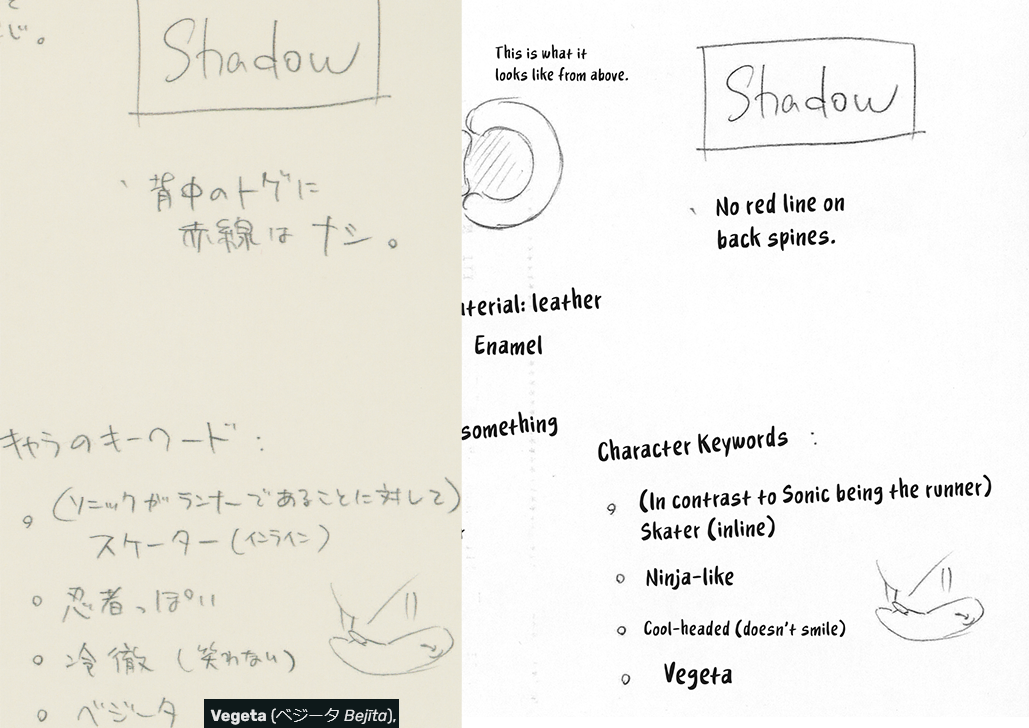 と
じ。
Shadow
背中のトゲに
赤線はナシ。
キャラのキーワード:
(ソニックがランナーであることに対して)
スケーター(インライン)
忍者っぽい
冷徹(笑わない)
ベジータ
Vegeta (ベジータ Bejita),
This is what it
looks like from above.
Shadow
No red line on
back spines.
aterial: leather
Enamel
something
Character Keywords :
(In contrast to Sonic being the runner)
Skater (inline)
Ninja-like
Cool-headed (doesn't smile)
Vegeta